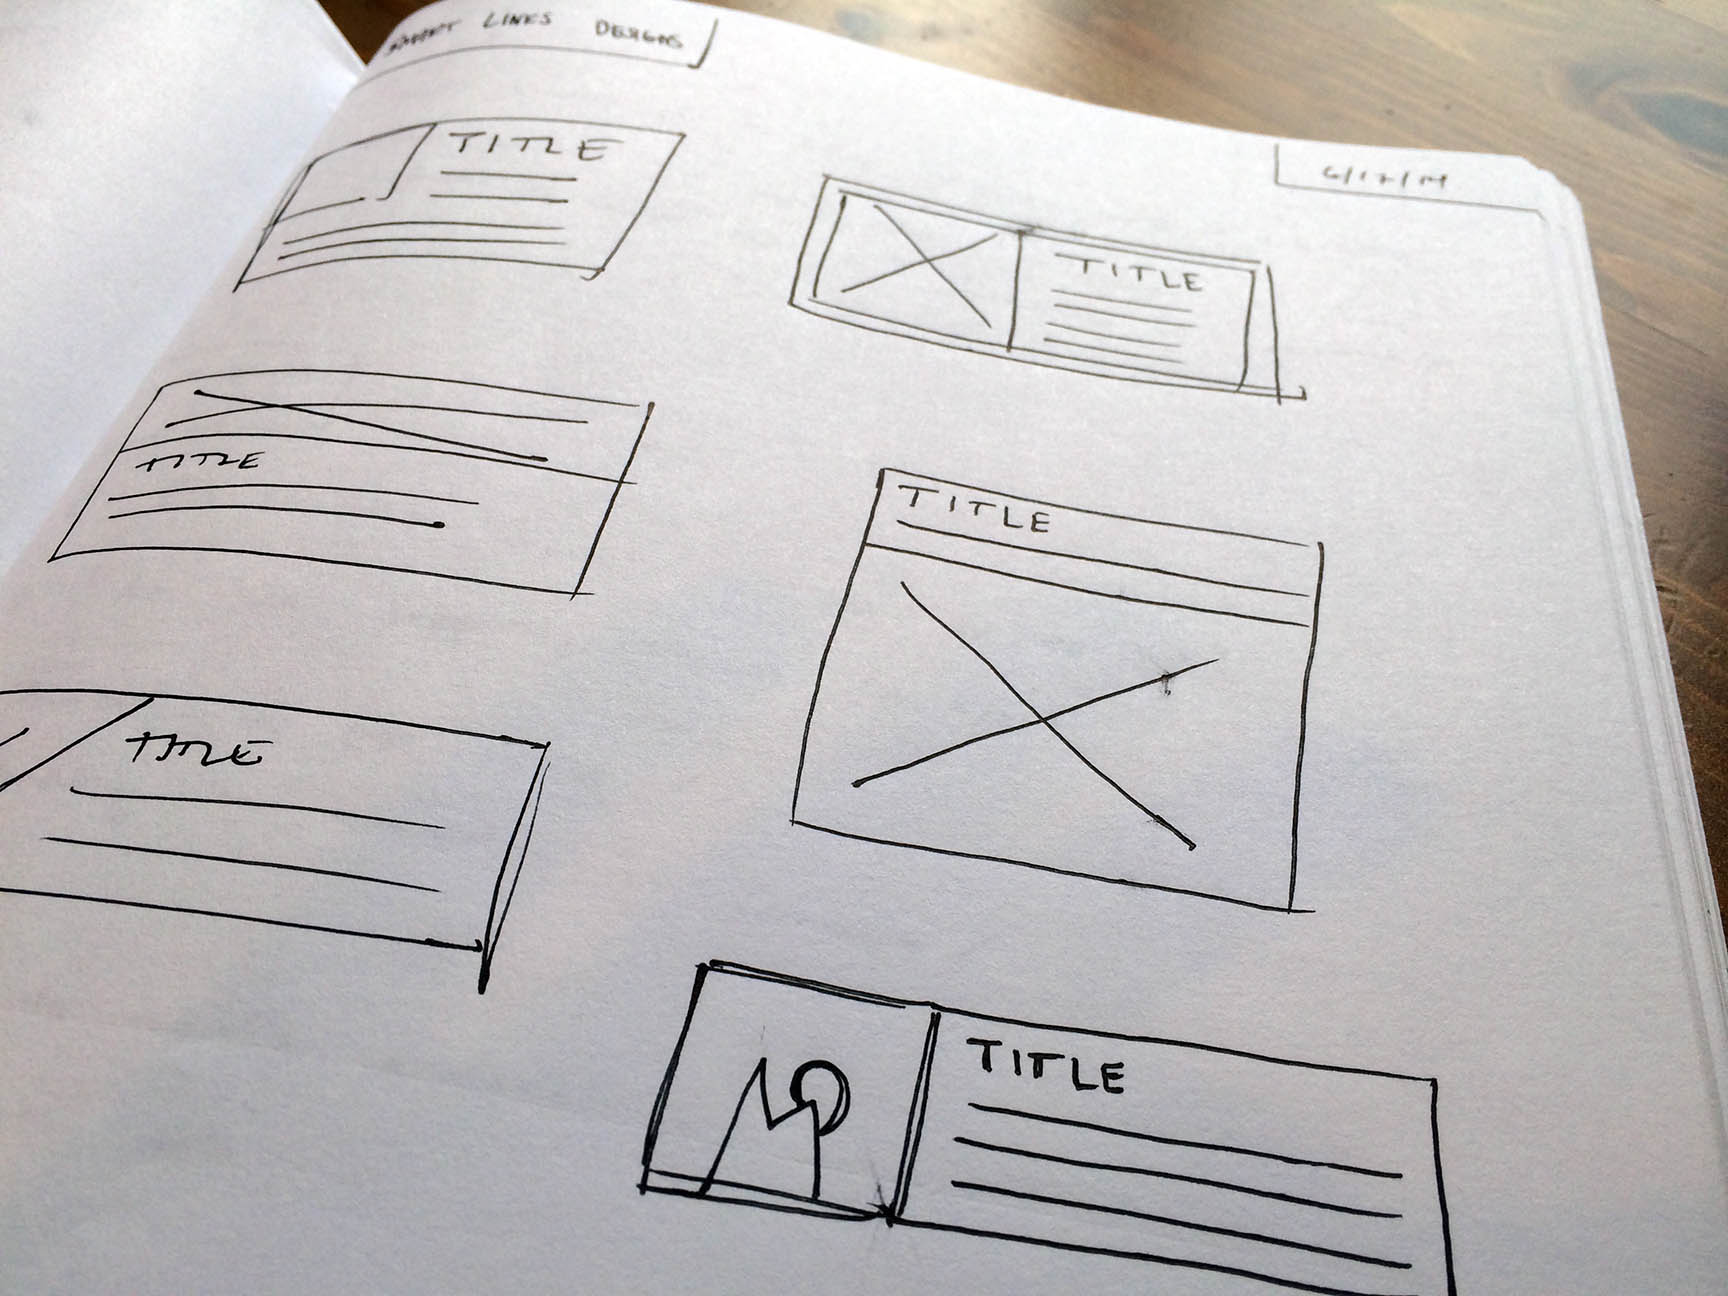 LINES DESIGNS
6/17/14
TITLE
TITLE
TITLE
TITLE
TITLE
TITLE